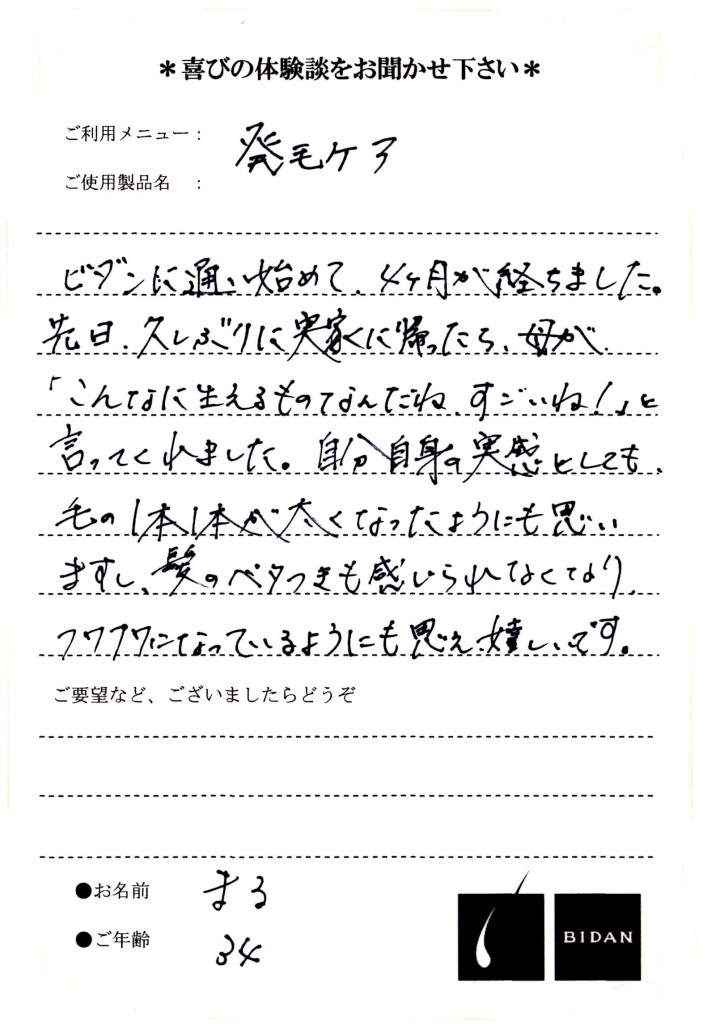 ＊喜びの体験談をお聞かせ下さい＊
ご利用メニュー：
発毛ケア
ご使用製品名　：
ビダンに通い始めて、4ヶ月が経ちました。
先日、久しぶりに実家に帰ったら、母が、
「こんなに生えるものなんだね、すごいね！」と
言ってくれました。自分自身の実感としても、
毛の1本1本が太くなったようにも思い
ますし、髪のベタつきも感じられなくなり、
フワフワになっているようにも思え、嬉しいです。
ご要望など、ございましたらどうぞ
●お名前　まる
●ご年齢　34
BIDAN